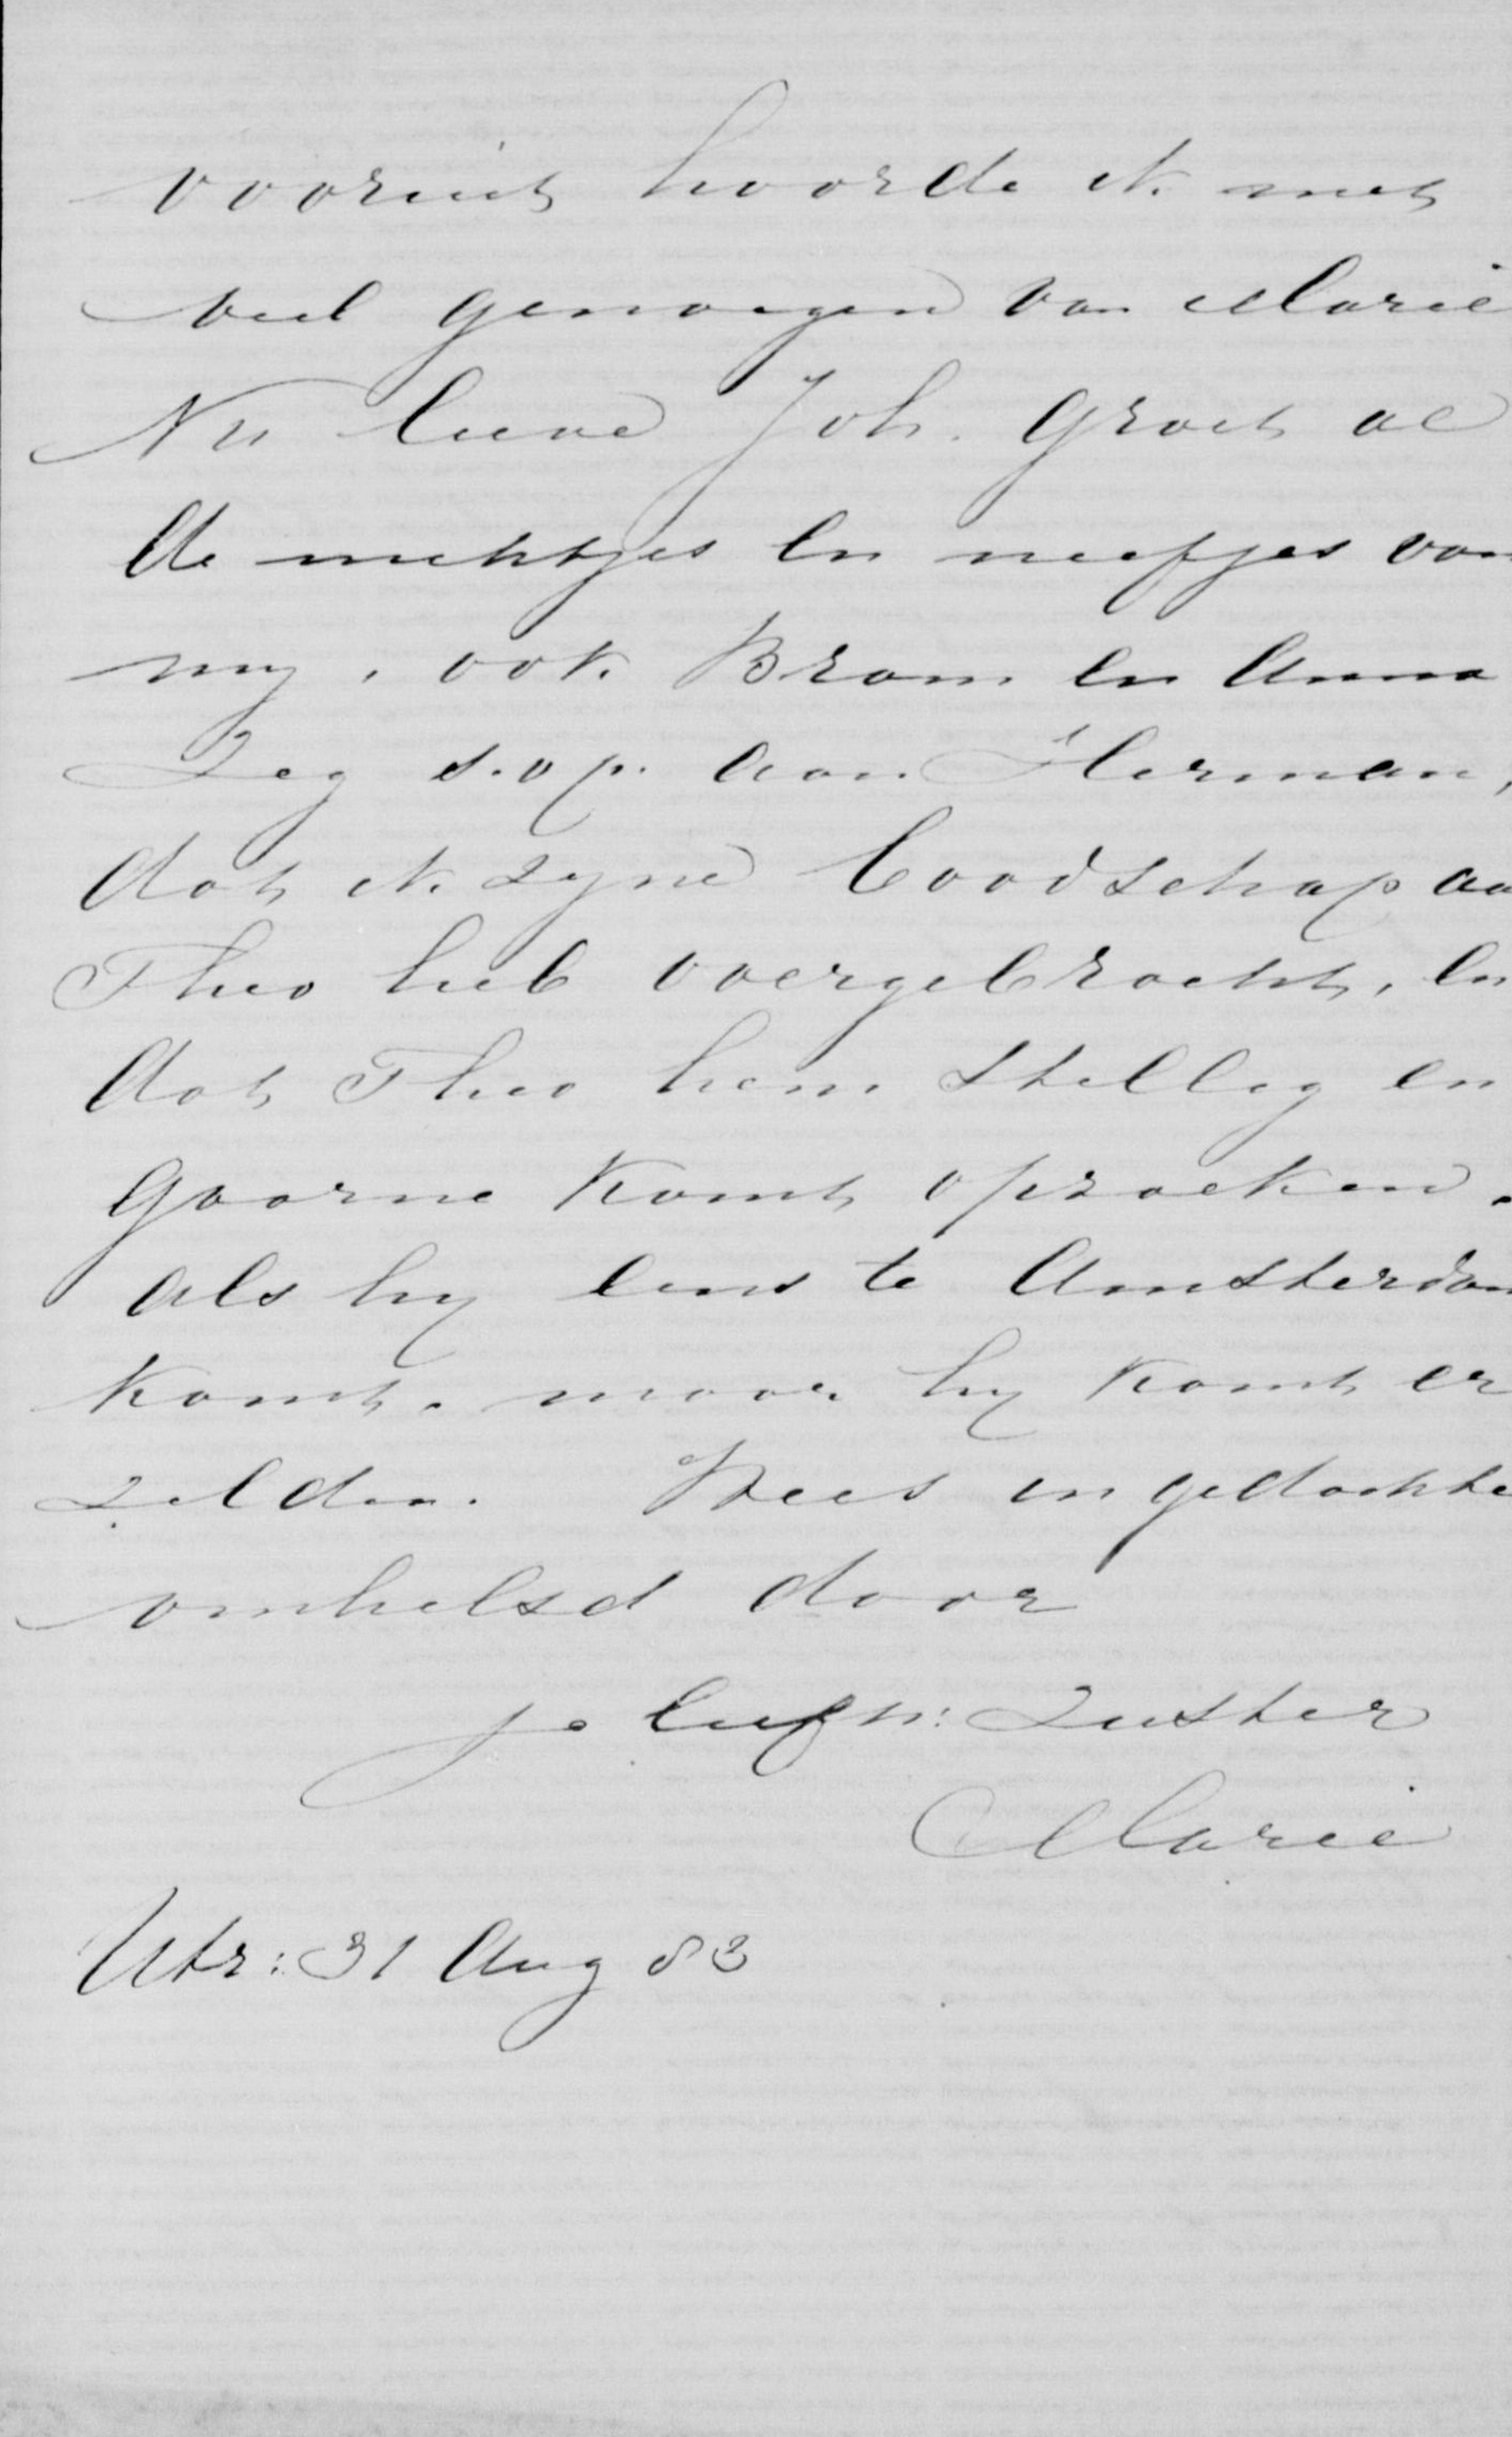 vooruit hoorde ik met
veel genoegen van Marie
Nu lieve Joh. groet al
de nichtjes en neefjes van
my, ook Bram en Anna
Zeg s.v.p. aan Herman,
dat ik zyne boodschap aa
Theo heb overgebracht, en
dat Theo hem stellig en
gaarne komt opzoeken.
als hy eens te Amsterdam
komt. maar hy komt er
zelden. Wees in gedachte
omhelsd door
je liefh: Zuster
Marie
Utr: 31 Aug 83